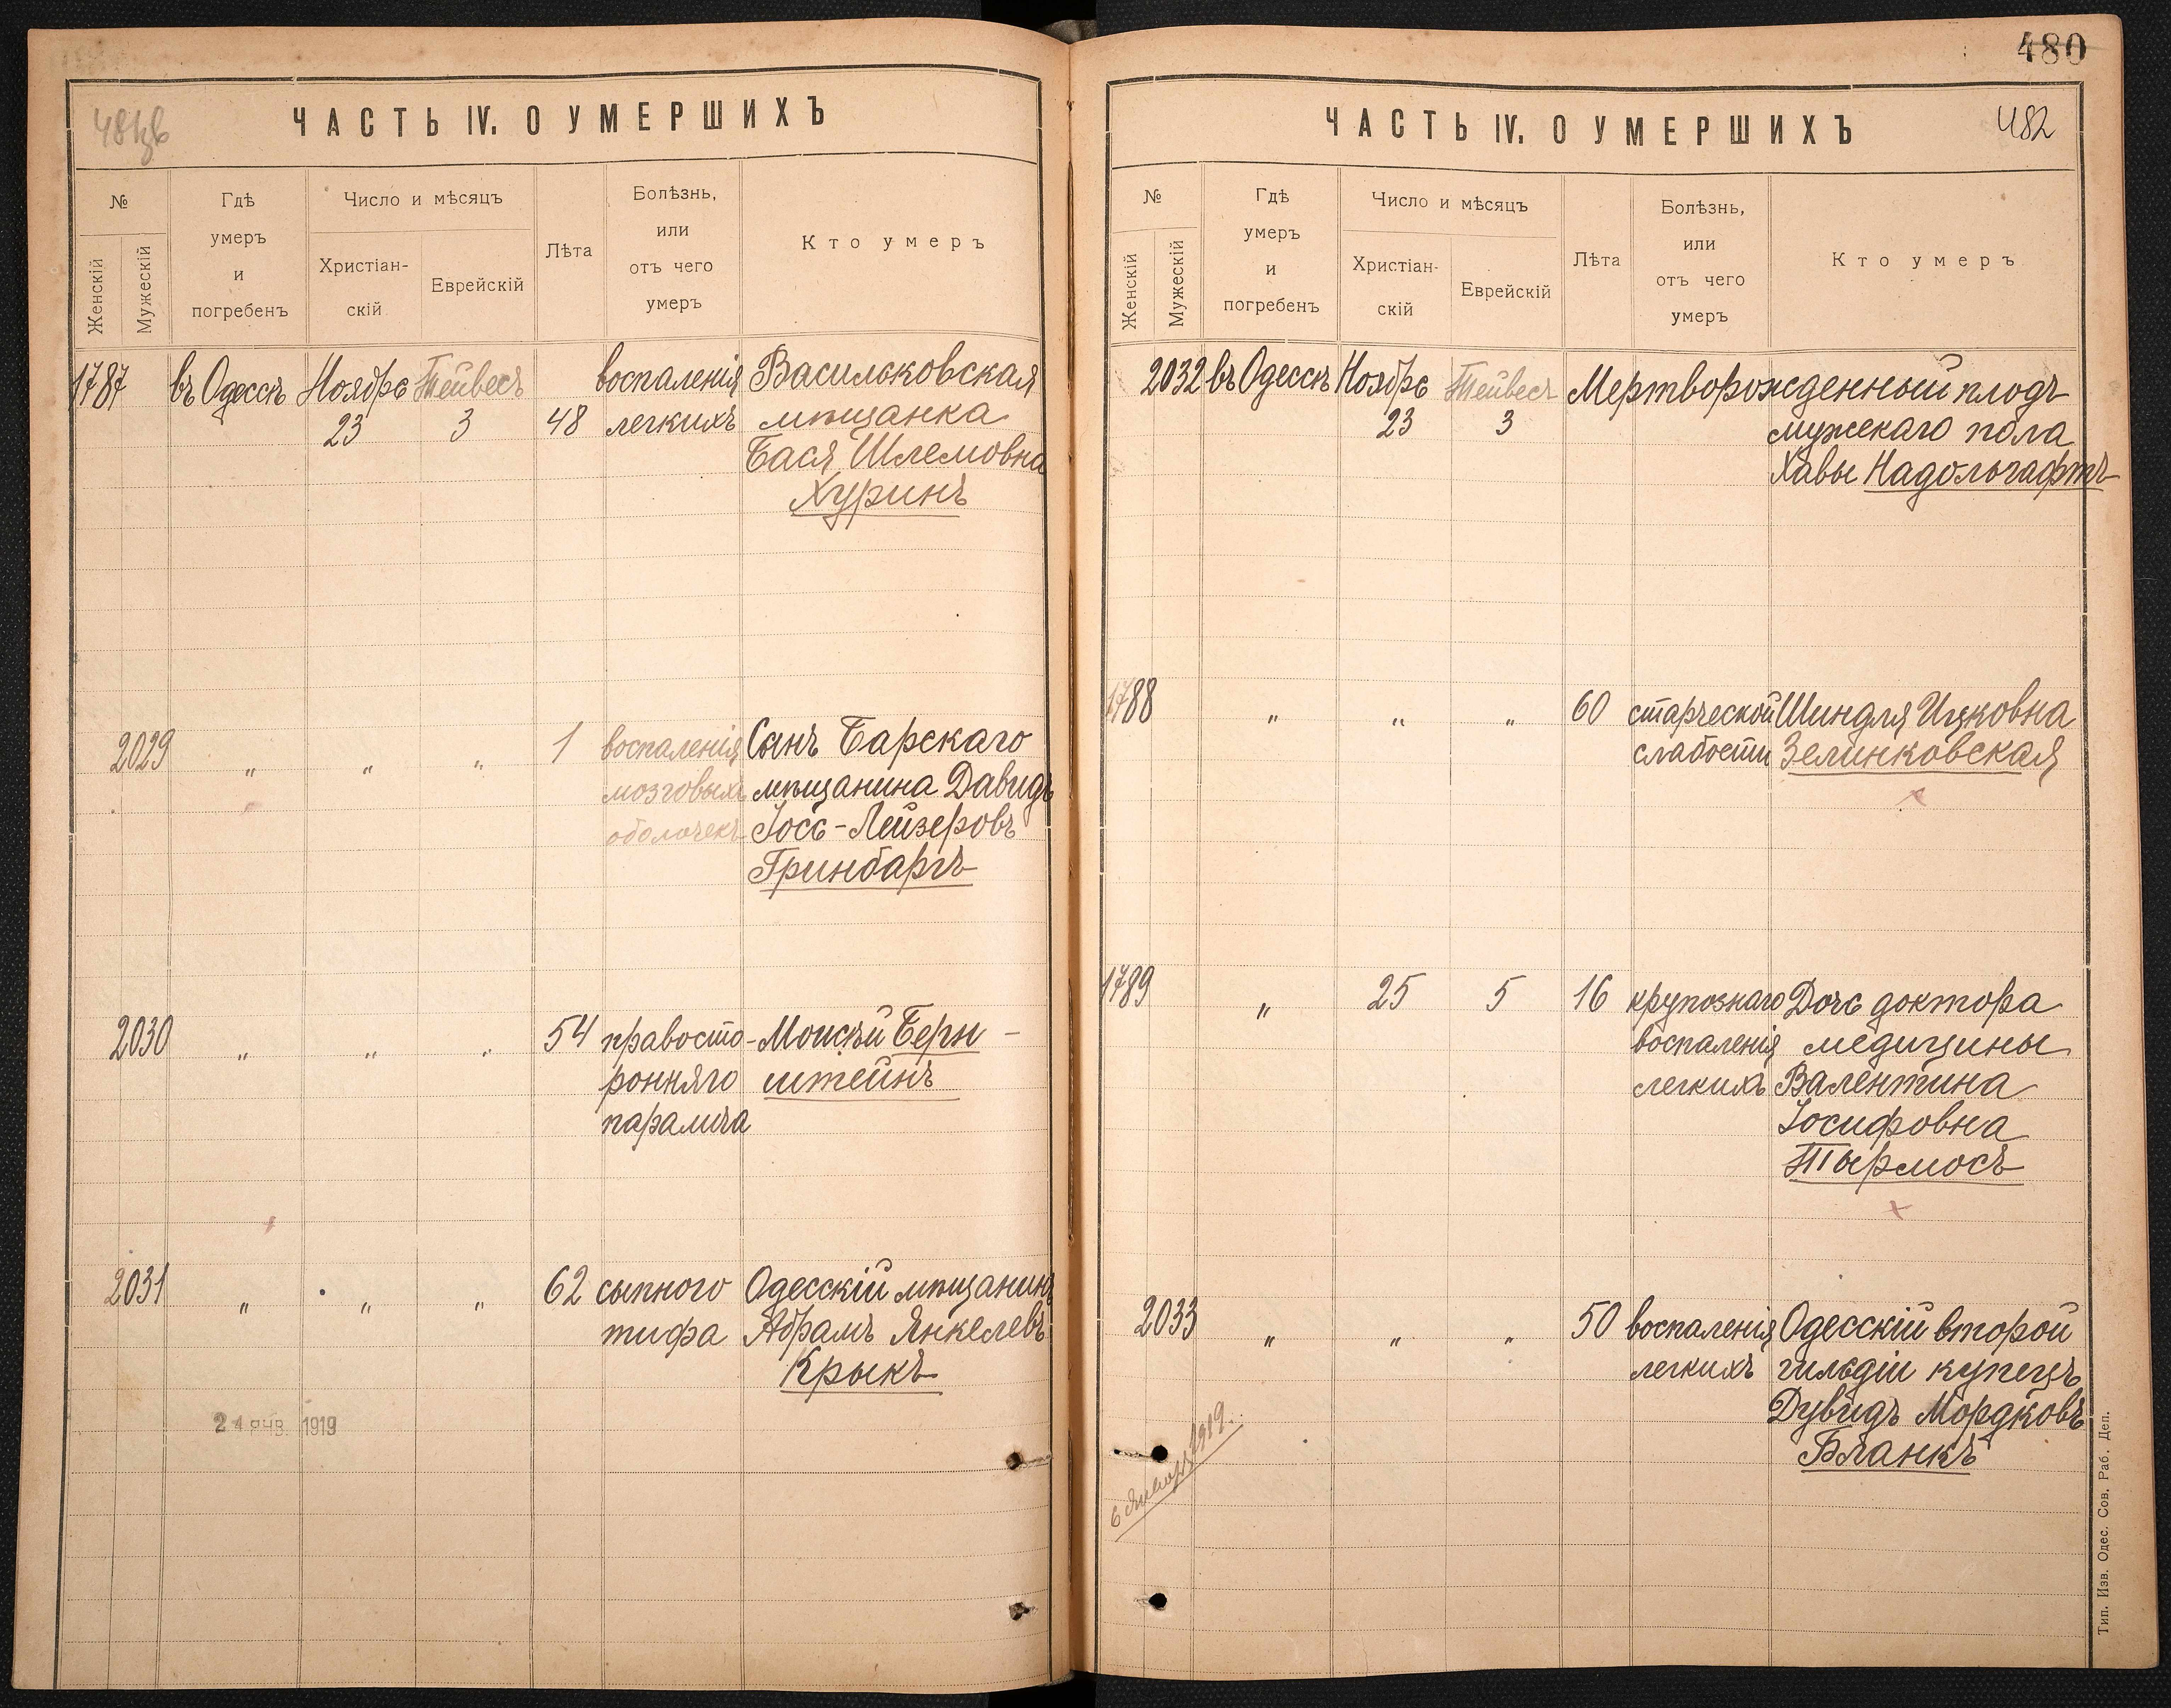 ЧАСТЬ IV. О УМЕРШИХЪ
№
Женскій
Мужескій
Гдѣ
умеръ
и
погребенъ
Число и мѣсяцъ
Христіан-
скій
Еврейскій
Лѣта
Болѣзнь,
или
отъ чего
умеръ
Кто умеръ
1787 въ Одессѣ Ноября Тейвесъ воспаленія Васильковская
23 3 48 легкихъ мѣщанка
Бася Шлемовна
Хуринъ
2029 " " " 1 воспаленія Сынъ Барскаго
мозговыхъ мѣщанина Давидъ
оболочекъ Іось-Лейзеровъ
Гринбаргъ
2030 " " " 54 правосто- Моисѣй Берн-
ронняго штейнъ
паралича
2031 " " " 62 сыпного Одесскій мѣщанинъ
тифа Абрамъ Янкелевъ
Крыкъ
24 янв. 1919
480
ЧАСТЬ IV. О УМЕРШИХЪ
482
№
Женскій
Мужескій
Гдѣ
умеръ
и
погребенъ
Число и мѣсяцъ
Христіан-
скій
Еврейскій
Лѣта
Болѣзнь,
или
отъ чего
умеръ
Кто умеръ
2032 въ Одессѣ Ноября Тейвесъ Мертворожденный плодъ
23 3 мужскаго пола
Хавы Надольгафтъ
1788 " " " 60 старческой Шиндля Ицковна
слабости Зелинковская
1789 " 25 5 16 крупознаго Дочь доктора
воспаленія медицины
легкихъ Валентина
Іосифовна
Тырмосъ
2033 " " " 50 воспаленія Одесскій второй
легкихъ гильдіи купецъ
Дувидъ Мордковъ
Бланкъ
6 Января 1919.
Тип. Изв. Одес. Сов. Раб. Деп.